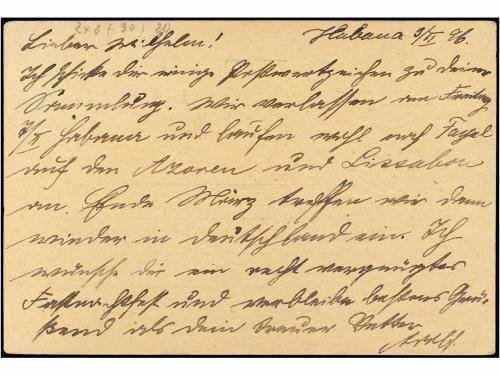 246 (-30)
Lieber Wilhelm! Habana 3/II 96.
Ich schicke dir einige Postwertzeichen zu deiner
Sammlung. Wir verlassen am Freitag
7/II Habana und laufen wohl noch Fayal
auf den Azoren und Lissabon
an. Ende März treffen wir dann
wieder in Deutschland ein. Ich
wünsche dir ein recht vergnügtes
Fastnachtsfest und verbleibe bestens Grü-
ßend als dein treuer Vetter
Adolf.